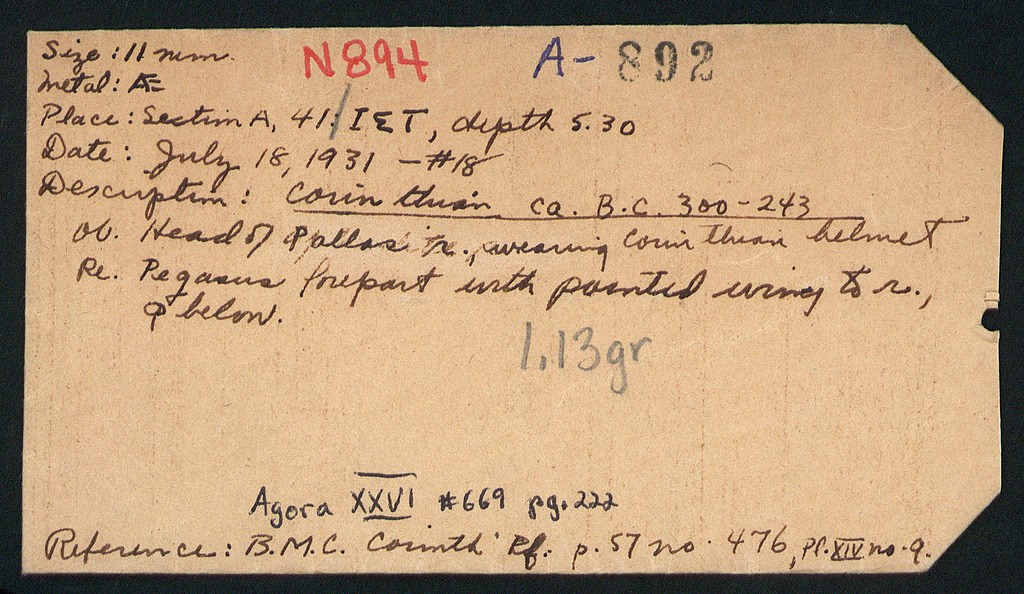 Size: 11 mm. N894 A-892
Metal: Æ
Place: Section A, 41/ΙΣΤ, depth 5.30
Date: July 18, 1931 - #18
Description: Corinthian ca. B.C. 300-243
Ob. Head of Pallas r., wearing Corinthian helmet
Re. Pegasus forepart with pointed wing to r.,
Ϙ below.
1.13gr
Agora XXVI #669 pg. 222
Reference: B.M.C. Corinth p. 57 no. 476, Pl. XIV no. 9.